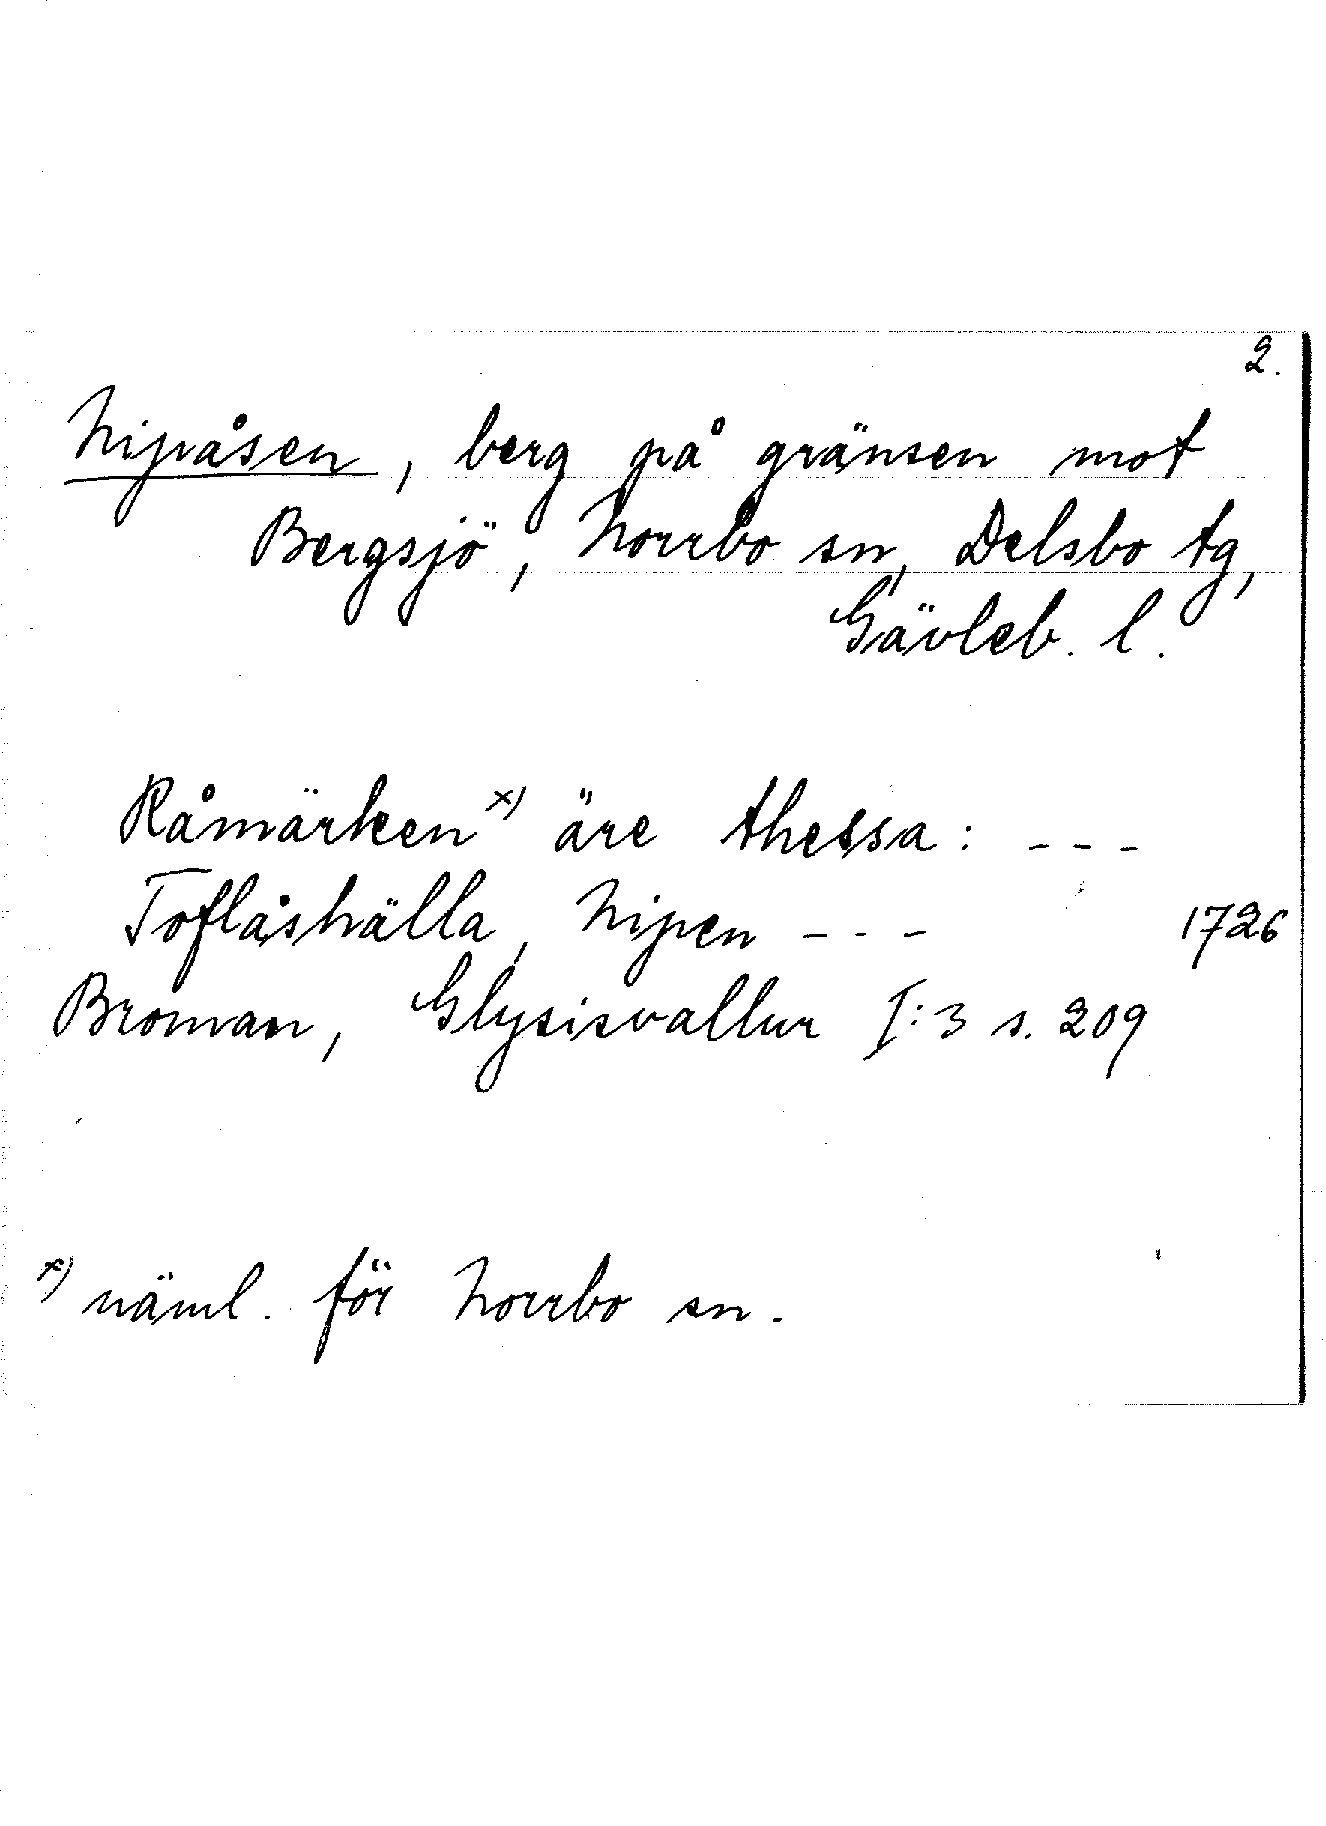 2.
Nipåsen, berg på gränsen mot
Bergsjö, Norrbo sn, Delsbo tg,
Gävleb. l.
Råmärken x) äre thessa: - - -
Toflåshälla, Nipen - - - 1726
Broman, Glysisvallur I:3 s. 209
x) näml. för Norrbo sn.